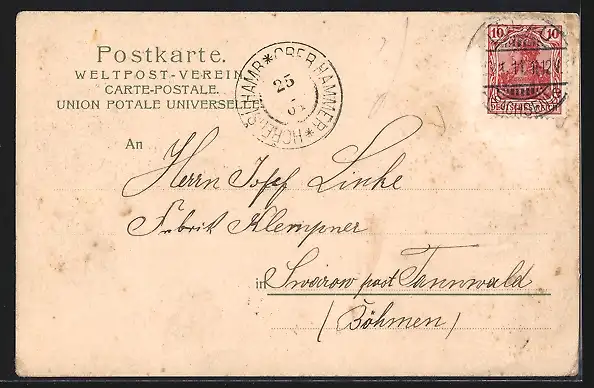 Postkarte.
WELTPOST-VEREIN
CARTE-POSTALE.
UNION POTALE UNIVERSELLE
OBER HAMMER * HOŘEJŠÍ HAMR *
25
10 10
An
Herrn Josef Linke
Fabrik Klempner
in Swarow post Tannwald
(Böhmen)